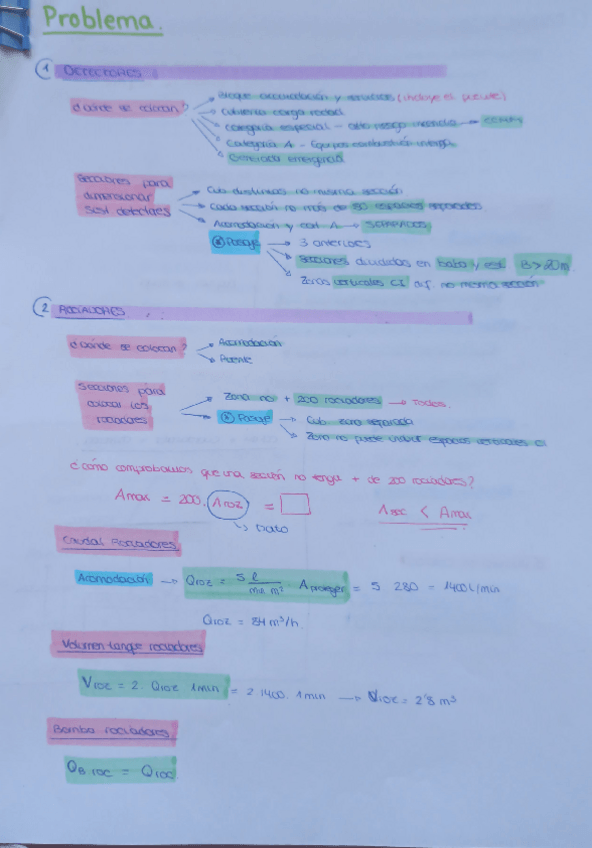 Problema.
1 DETECTORES:
¿Dónde se colocan?
Bloque acomodación y servicios (incluye el puente)
Cubierta carga rodada
Categoría especial - alto riesgo incendio →
Categoría A - Equipos combustión interna
Generador emergencia
Secciones para dimensionar
Sist detectores
Cub distintas no misma sección
Cada sección no más de 50 espacios separados
Acomodación y cat A → SEPARADOS
Pasaje → 3 anteriores
Secciones divididas en babor y est B > 20 m
Zonas verticales CI dif. no misma sección
2 ROCIADORES
¿Dónde se colocan?
Acomodación
Puente
Secciones para
colocar los
rociadores
Zona no + 200 rociadores → Todos.
Pasaje → Cub zona separada
Zona no puede incluir espacios verticales CI
¿Cómo comprobamos que una sección no tenga + de 200 rociadores?
Amax = 200 · Aroz =
Asec < Amax
↳ Dato
Caudal Rociadores
Acomodación → Qroz = 5 l/min m² · Aproteger = 5 · 280 = 1400 l/min
Qroz = 84 m³/h.
Volumen tanque rociadores
Vroz = 2 · Qroz · 1min = 2 · 1400 · 1 min → Vroz = 2'8 m³
Bomba rociadores
QB roc = Qroc